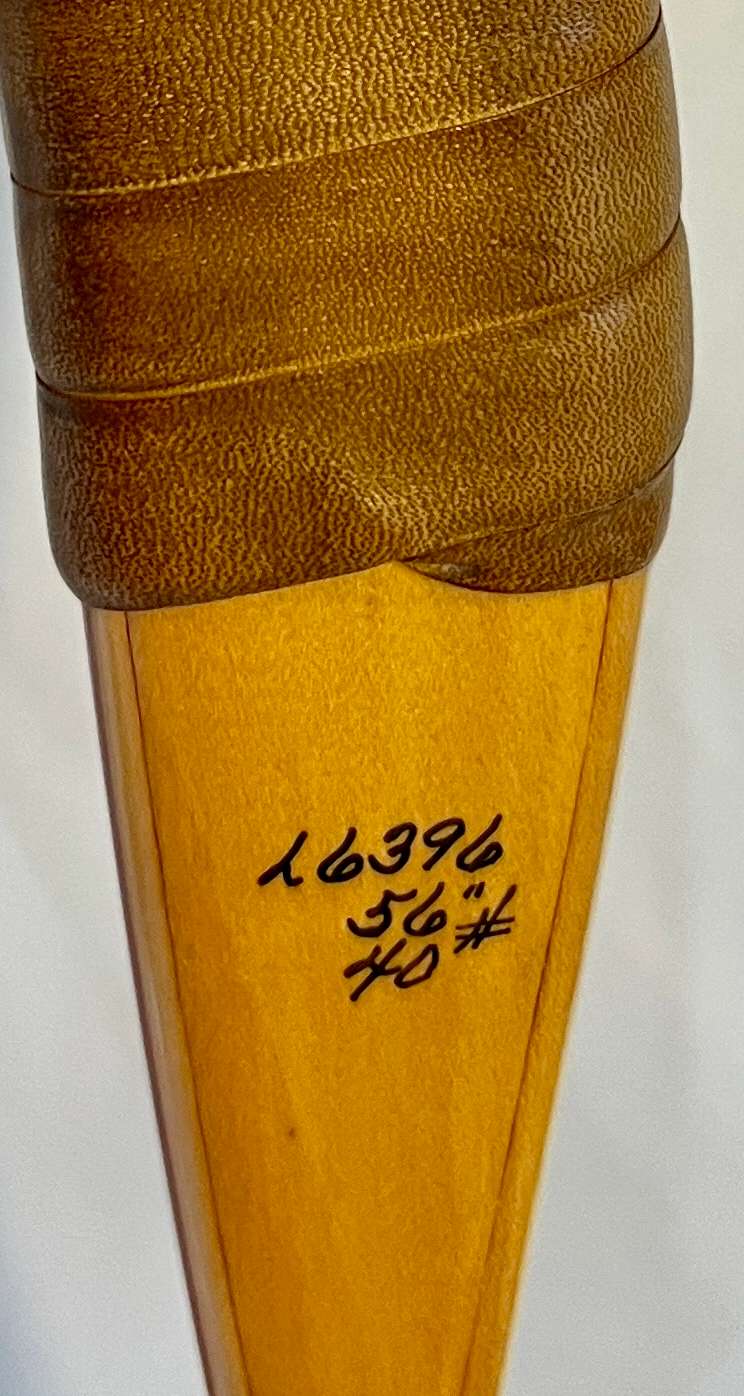 L6396
56"
40#